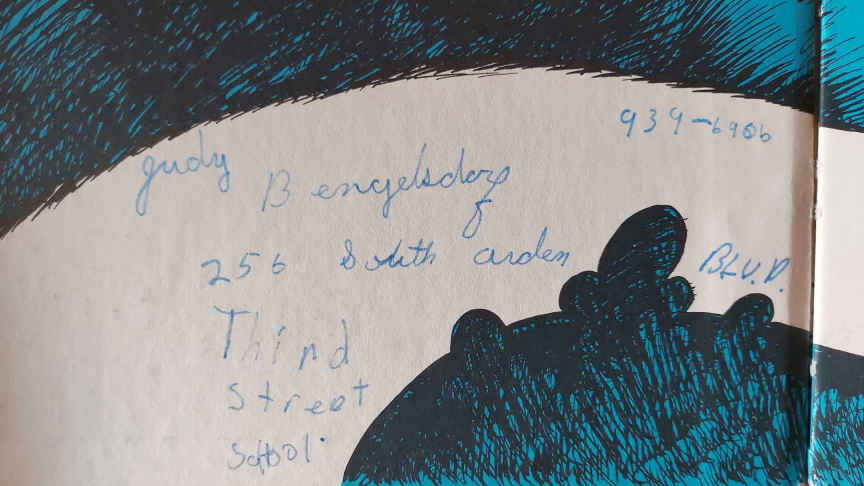 939-6906
Judy Bengelsdorf
256 South arden BLV.D.
Third
Street
School.